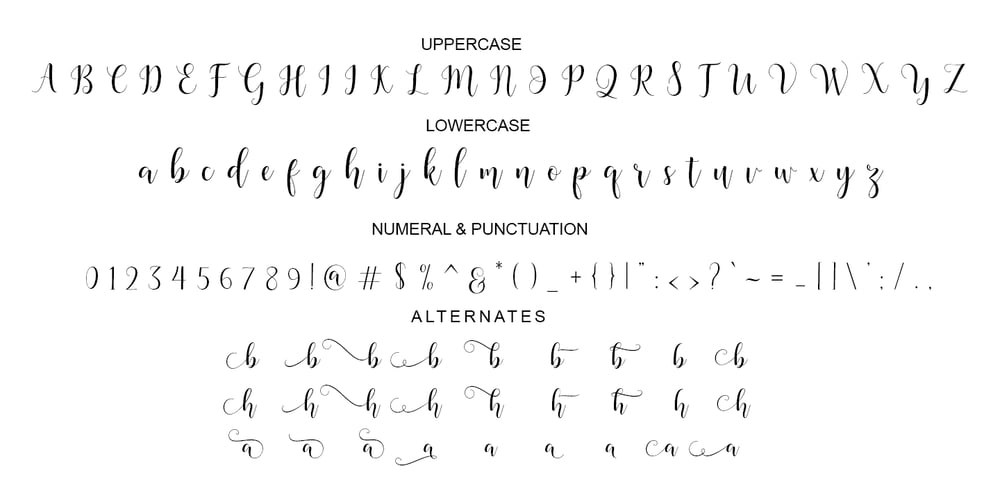 UPPERCASE
A B C D E F G H I J K L M N O P Q R S T U V W X Y Z
LOWERCASE
a b c d e f g h i j k l m n o p q r s t u v w x y z
NUMERAL & PUNCTUATION
0 1 2 3 4 5 6 7 8 9 ! @ # $ % ^ & * ( ) _ + { } | " : < > ? ` ~ = _ | | \ ' ; / . ,
ALTERNATES
b b b b b b b b b
h h h h h h h h h
a a a a a a a a a